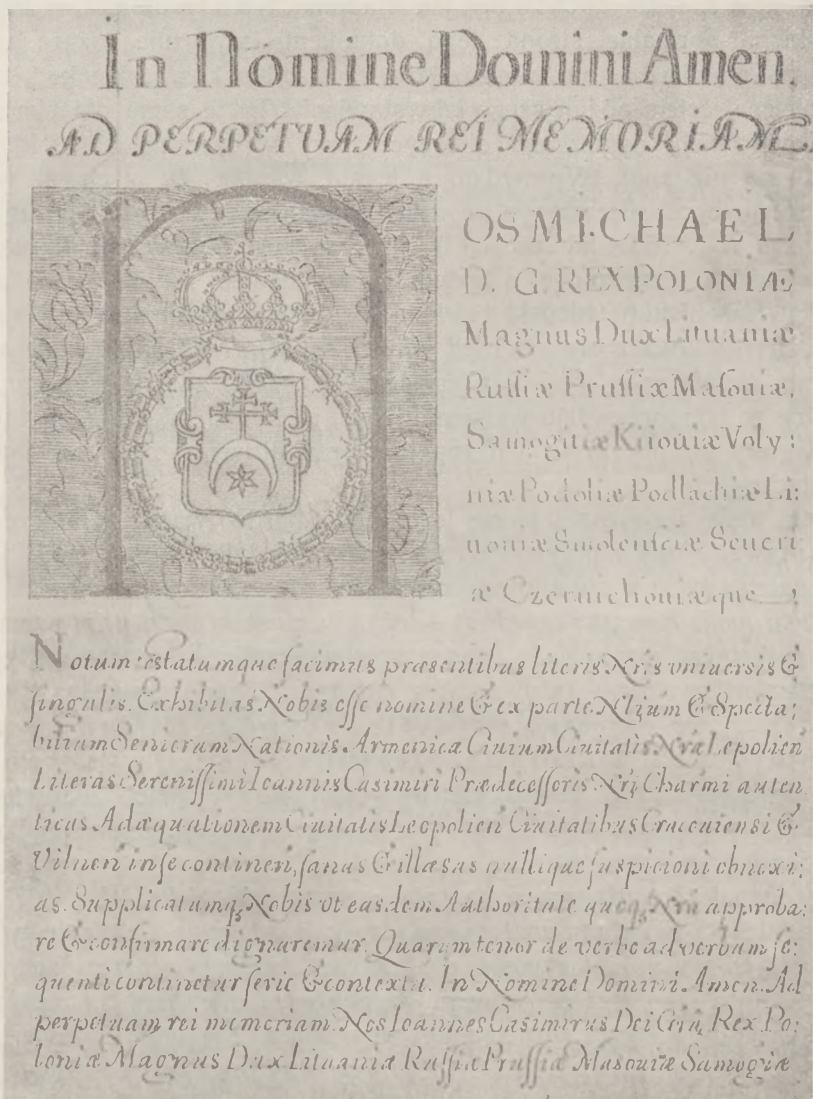 In Nomine Domini Amen.
AD PERPETUAM REI MEMORIAM
OS MICHAEL
D. G. REX POLONIÆ
Magnus Dux Lituaniæ
Ruſſiæ Pruſſiæ Maſouiæ,
Samogitiæ Kiiouiæ Voly:
niæ Podoliæ Podlachiæ Li:
uoniæ Smolenſciæ Seueri
æ Czernichouiæque
Notum testatumque facimus præsentibus literis Nris vniuersis &
ſingulis. Exhibitas Nobis eſſe nomine & ex parte Nlium & Specta;
bilium Seniorum Nationis Armenicæ Ciuium Ciuitatis Nræ Lepolien
Literas Sereniſſimi Ioannis Casimiri Prædeceſſoris Nri Charmi auten
ticas Adæquationem Ciuitatis Leopolien Ciuitatibus Cracouiensi &
Vilnen in ſe continen, ſanas & illæsas nullique ſuspicioni obnoxi;
as. Supplicatumqꝫ Nobis vt easdem Authoritate queqꝫ Nrâ approba:
re & confirmare dignaremur. Quarum tenor de verbo ad verbum ſe:
quenti continetur ſerie & contextu. In Nomine Domini Amen. Ad
perpetuam rei memoriam. Nos Ioannes Casimirus Dei Grâ, Rex Po:
loniæ Magnus Dux Lituaniæ Ruſſiæ Pruſſiæ Masouiæ Samogiæ